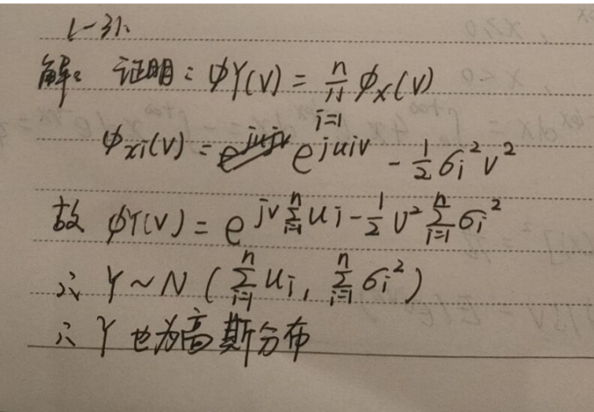 1-31.
解: 证明: ϕY(V) = ∏_{i=1}^{n} ϕ_X(V)
ϕ_{xi}(V) = e^{juiv} - ½ σ_i² v²
故 ϕY(V) = e^{jv ∑_{i=1}^{n} ui - ½ v² ∑_{i=1}^{n} σ_i²}
∴ Y ~ N ( ∑_{i=1}^{n} ui, ∑_{i=1}^{n} σ_i² )
∴ Y 也为高斯分布